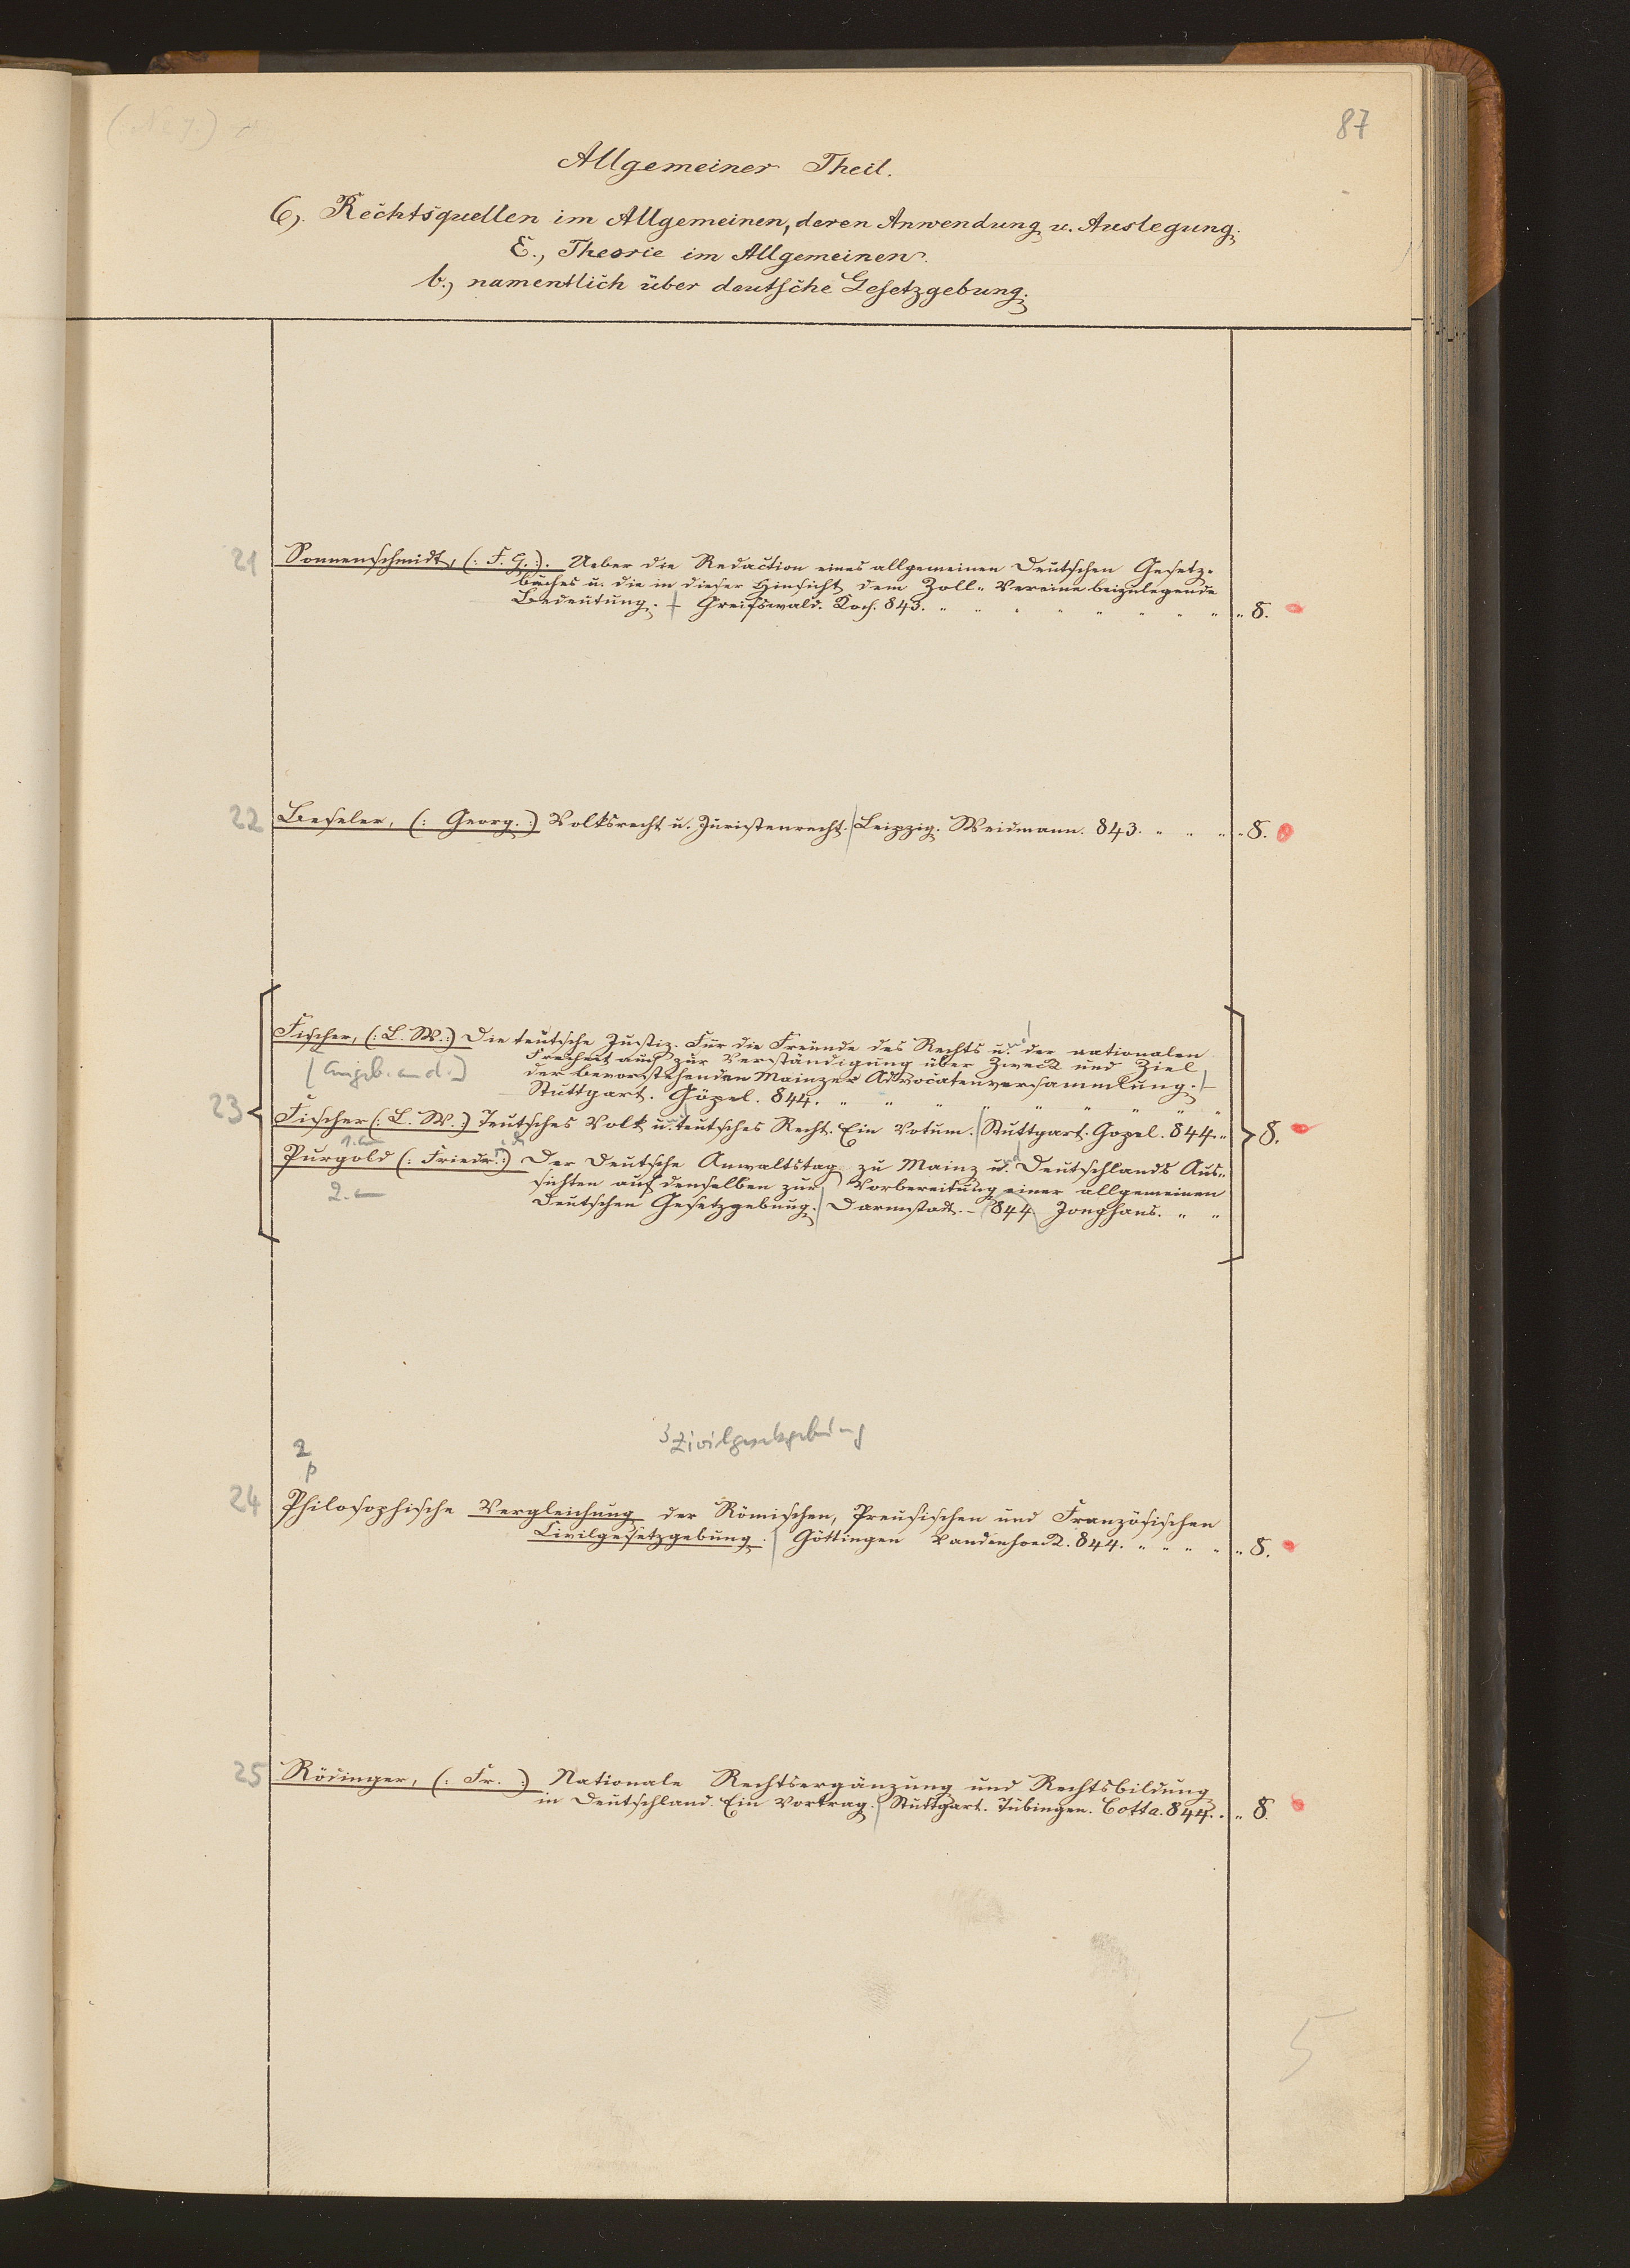 87
Allgemeiner Theil.
6, Rechtsquellen im Allgemeinen, deren Anwendung u. Auslegung.
E., Theorie im Allgemeinen.
b., namentlich über deutsche Gesetzgebung.
21 Sonnenschmidt, (: F. G. :). Ueber die Redaction eines allgemeinen Deutschen Gesetz-
buches u. die in dieser Hinsicht dem Zoll-Vereine beizulegende
Bedeutung. Greifswald. Koch. 843. 8.
22 Beseler, (: Georg. :) Volksrecht u. Juristenrecht. Leipzig. Weidmann. 843. 8.
Fischer, (: L. W. :) Die teutsche Justiz. Für die Freunde des Rechts u. der nationalen
Freiheit auch zur Verständigung über Zweck und Ziel
der bevorstehenden Mainzer Advocatenversammlung.
Stuttgart. Göpel. 844.
23 Fischer (: L. W. :) Teutsches Volk u. teutsches Recht. Ein Votum. Stuttgart. Göpel. 844. 8.
Purgold (: Friedr. :) Der Deutsche Anwaltstag zu Mainz u. Deutschlands Aus-
sichten auf denselben zur Vorbereitung einer allgemeinen
Deutschen Gesetzgebung. Darmstadt. - 844 Jonghaus.
2.
3 Zivilgesetzgebung
2
p
24 Philosophische Vergleichung der Römischen, Preusischen und Französischen
Civilgesetzgebung. Göttingen Vandenhoeck. 844. 8.
25 Rödinger, (: Fr. :) Nationale Rechtsergänzung und Rechtsbildung
in Deutschland. Ein Vortrag. Stuttgart. Tübingen. Cotta. 844. 8.
5